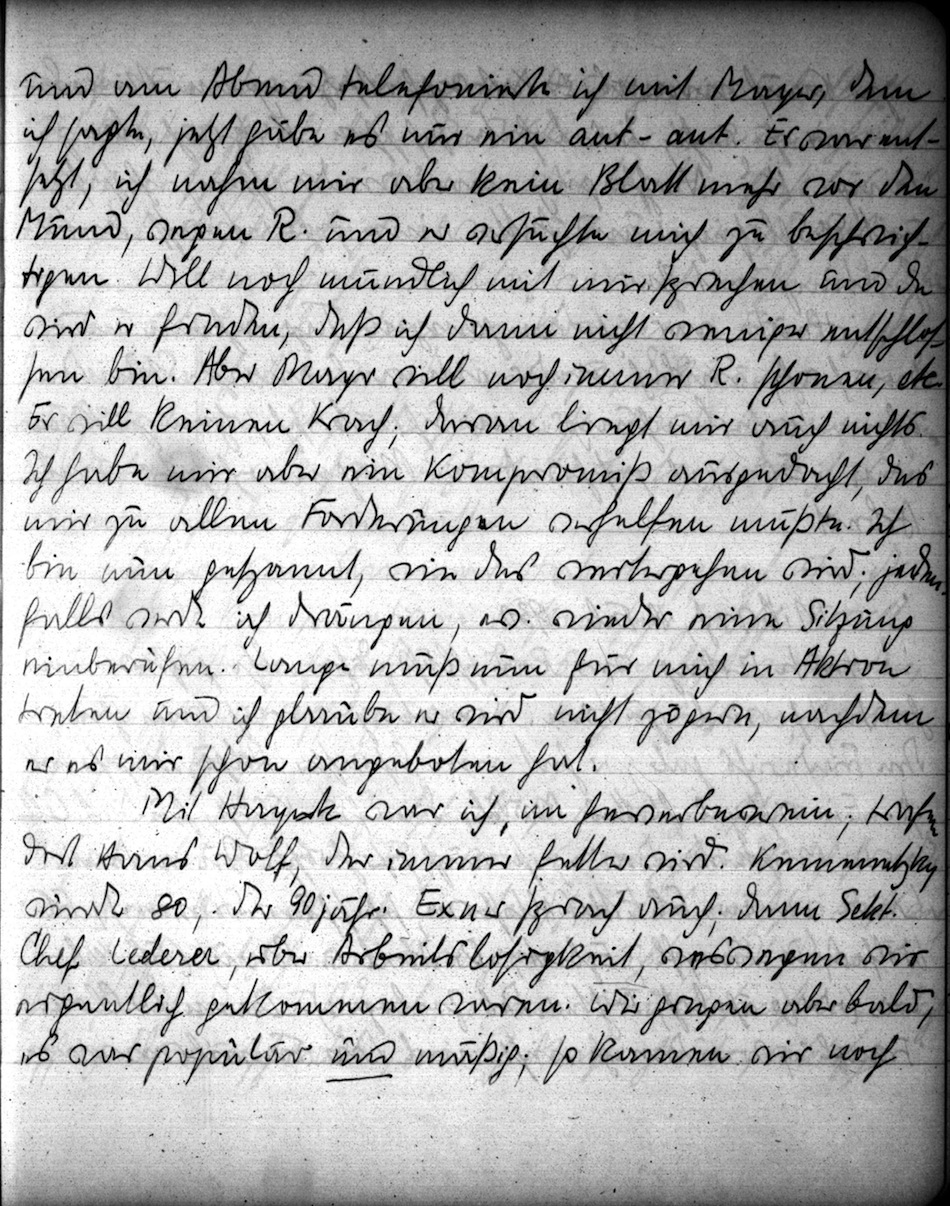 und am Abend telefonierte ich mit Mayer, dem
ich sagte, jetzt gäbe es nur ein aut-aut. Er war ent-
setzt, ich nahm mir aber kein Blatt mehr vor den
Mund, wegen R. und er versuchte mich zu beschwich-
tigen. Will noch mündlich mit mir sprechen und da
wird er finden, daß ich dann nicht weniger entschlos-
sen bin. Aber Mayer will noch immer R. schonen, etc.
Er will keinen Krach; daran liegt mir auch nichts.
Ich habe mir aber ein Kompromiß ausgedacht, das
mir zu allen Forderungen verhelfen müßte. Ich
bin nun gespannt, wie das weitergehen wird; jeden-
falls werde ich drängen, es wieder eine Sitzung
einberufen. Lange muß nun für mich in Aktion
treten und ich glaube er wird nicht zögern, nachdem
er es mir schon angeboten hat.
Mit Hayek war ich im Gewerbeverein; trafen
dort Hans Wolf, der immer fetter wird.
wurde 80, der 90jähr. Exner sprach auch; dann Sekt.
Chef Lederer, über Arbeitslosigkeit, weswegen wir
eigentlich gekommen waren. Wir gingen aber bald,
es war populär und mäßig; so kamen wir noch